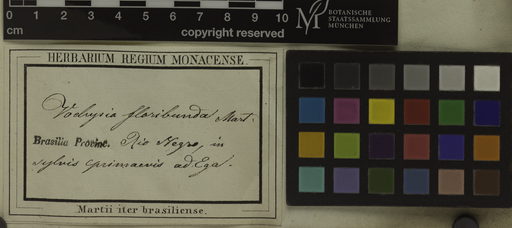 0 1 2 3 4 5 6 7 8 9 10
cm
copyright reserved
M
BOTANISCHE
STAATSSAMMLUNG
MÜNCHEN
HERBARIUM REGIUM MONACENSE.
Vochysia floribunda Mart.
Brasilia Provinc. Rio Negro, in
sylvis primaevis ad Ega.
Martii iter brasiliense.